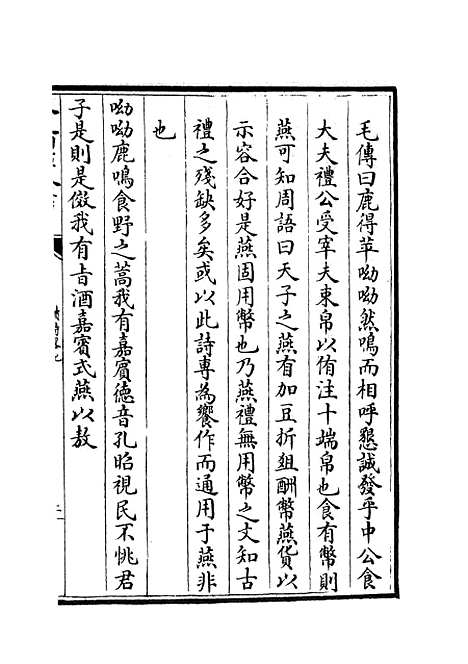 毛傳曰鹿得苹呦呦然鳴而相呼懇誠發乎中公食
大夫禮公受宰夫束帛以侑注十端帛也食有幣則
燕可知周語曰天子之燕有加豆折俎酬幣燕貨以
示容合好是燕固用幣也乃燕禮無用幣之文知古
禮之殘缺多矣或以此詩專為饗作而通用于燕非
也
呦呦鹿鳴食野之蒿我有嘉賓德音孔昭視民不恌君
子是則是傚我有旨酒嘉賓式燕以敖